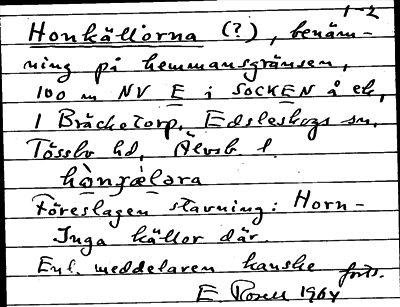 1-2
Honkällorna (?), benäm-
ning på hemmansgränsen,
100 m NV E i SOCKEN å ek,
1 Bräcketorp, Edsleskogs sn,
Tössbo hd, Älvsb l.
hòŋɂæ̀lɔra
Föreslagen stavning: Horn-
Inga källor där.
Enl. meddelaren kanske forts.
E. Rosell 1964